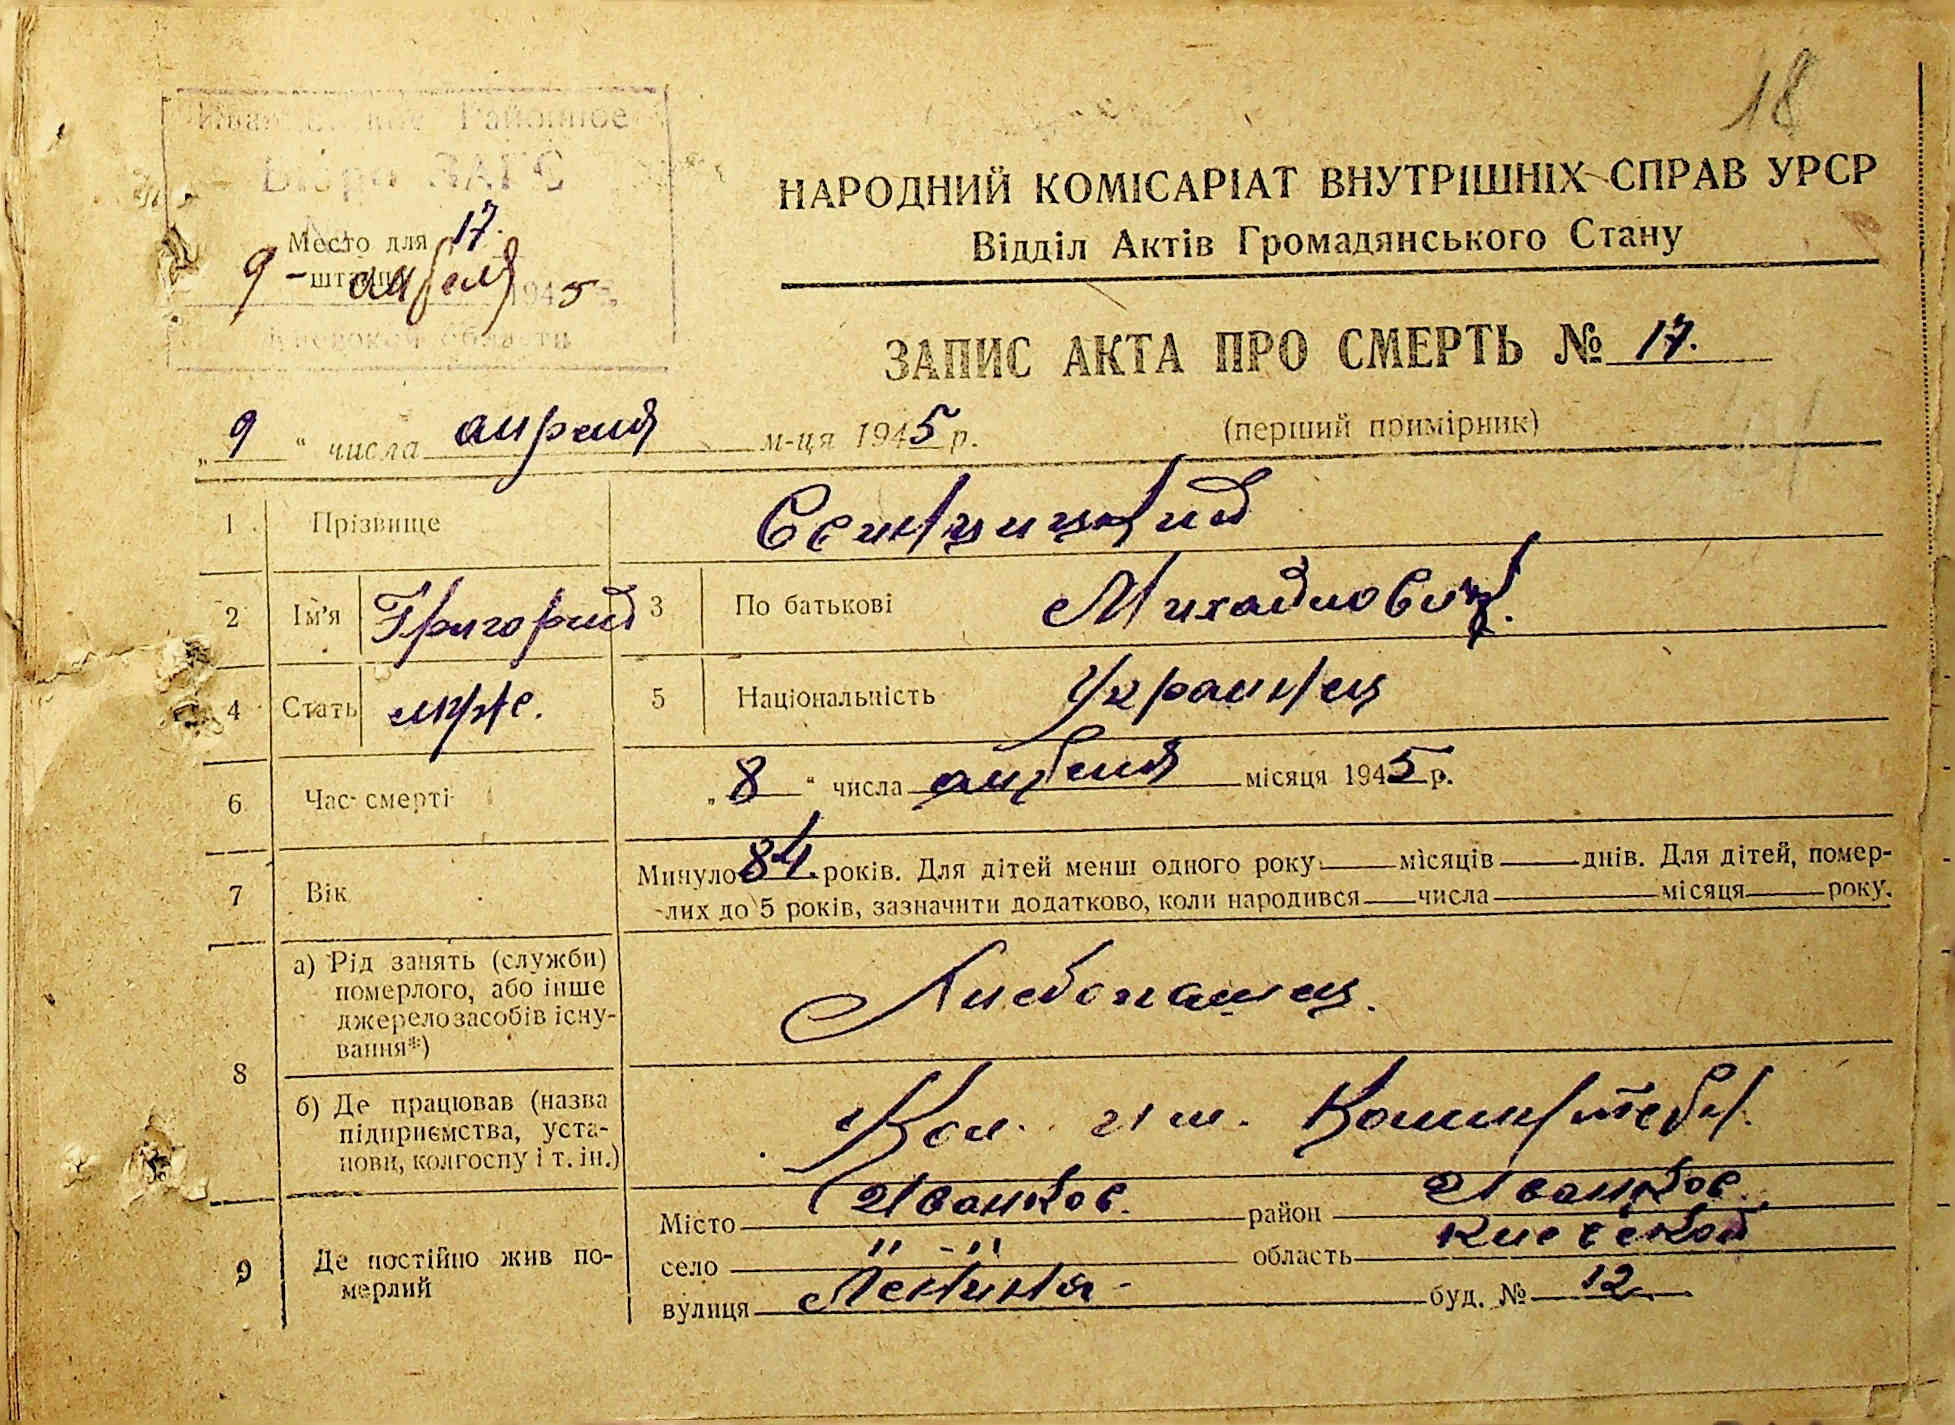 18
Районное
Бюро ЗАГС
Место для 17.
9 - апреля 1945
области
НАРОДНИЙ КОМІСАРІАТ ВНУТРІШНІХ СПРАВ УРСР
Відділ Актів Громадянського Стану
ЗАПИС АКТА ПРО СМЕРТЬ № 17.
„ 9 “ числа апреля м-ця 1945 р.
(перший примірник)
1 Прізвище
2 Ім'я Григорий 3 По батькові Михайлович.
4 Стать муж. 5 Національність Украинец
6 Час смерті „ 8 “ числа апреля місяця 1945 р.
7 Вік Минуло 84 років. Для дітей менш одного року місяців днів. Для дітей, помер-
лих до 5 років, зазначити додатково, коли народився числа місяця року.
8 а) Рід занять (служби)
померлого, або інше
джерело засобів існу-
вання*)
Хлебопашец.
б) Де працював (назва
підприємства, уста-
нови, колгоспу і т. ін.)
Кол. им. Коминтерн.
9 Де постійно жив по-
мерлий
Місто Иванков. район Иванков.
село " - " область Киевской
вулиця Ленина - буд. № 12